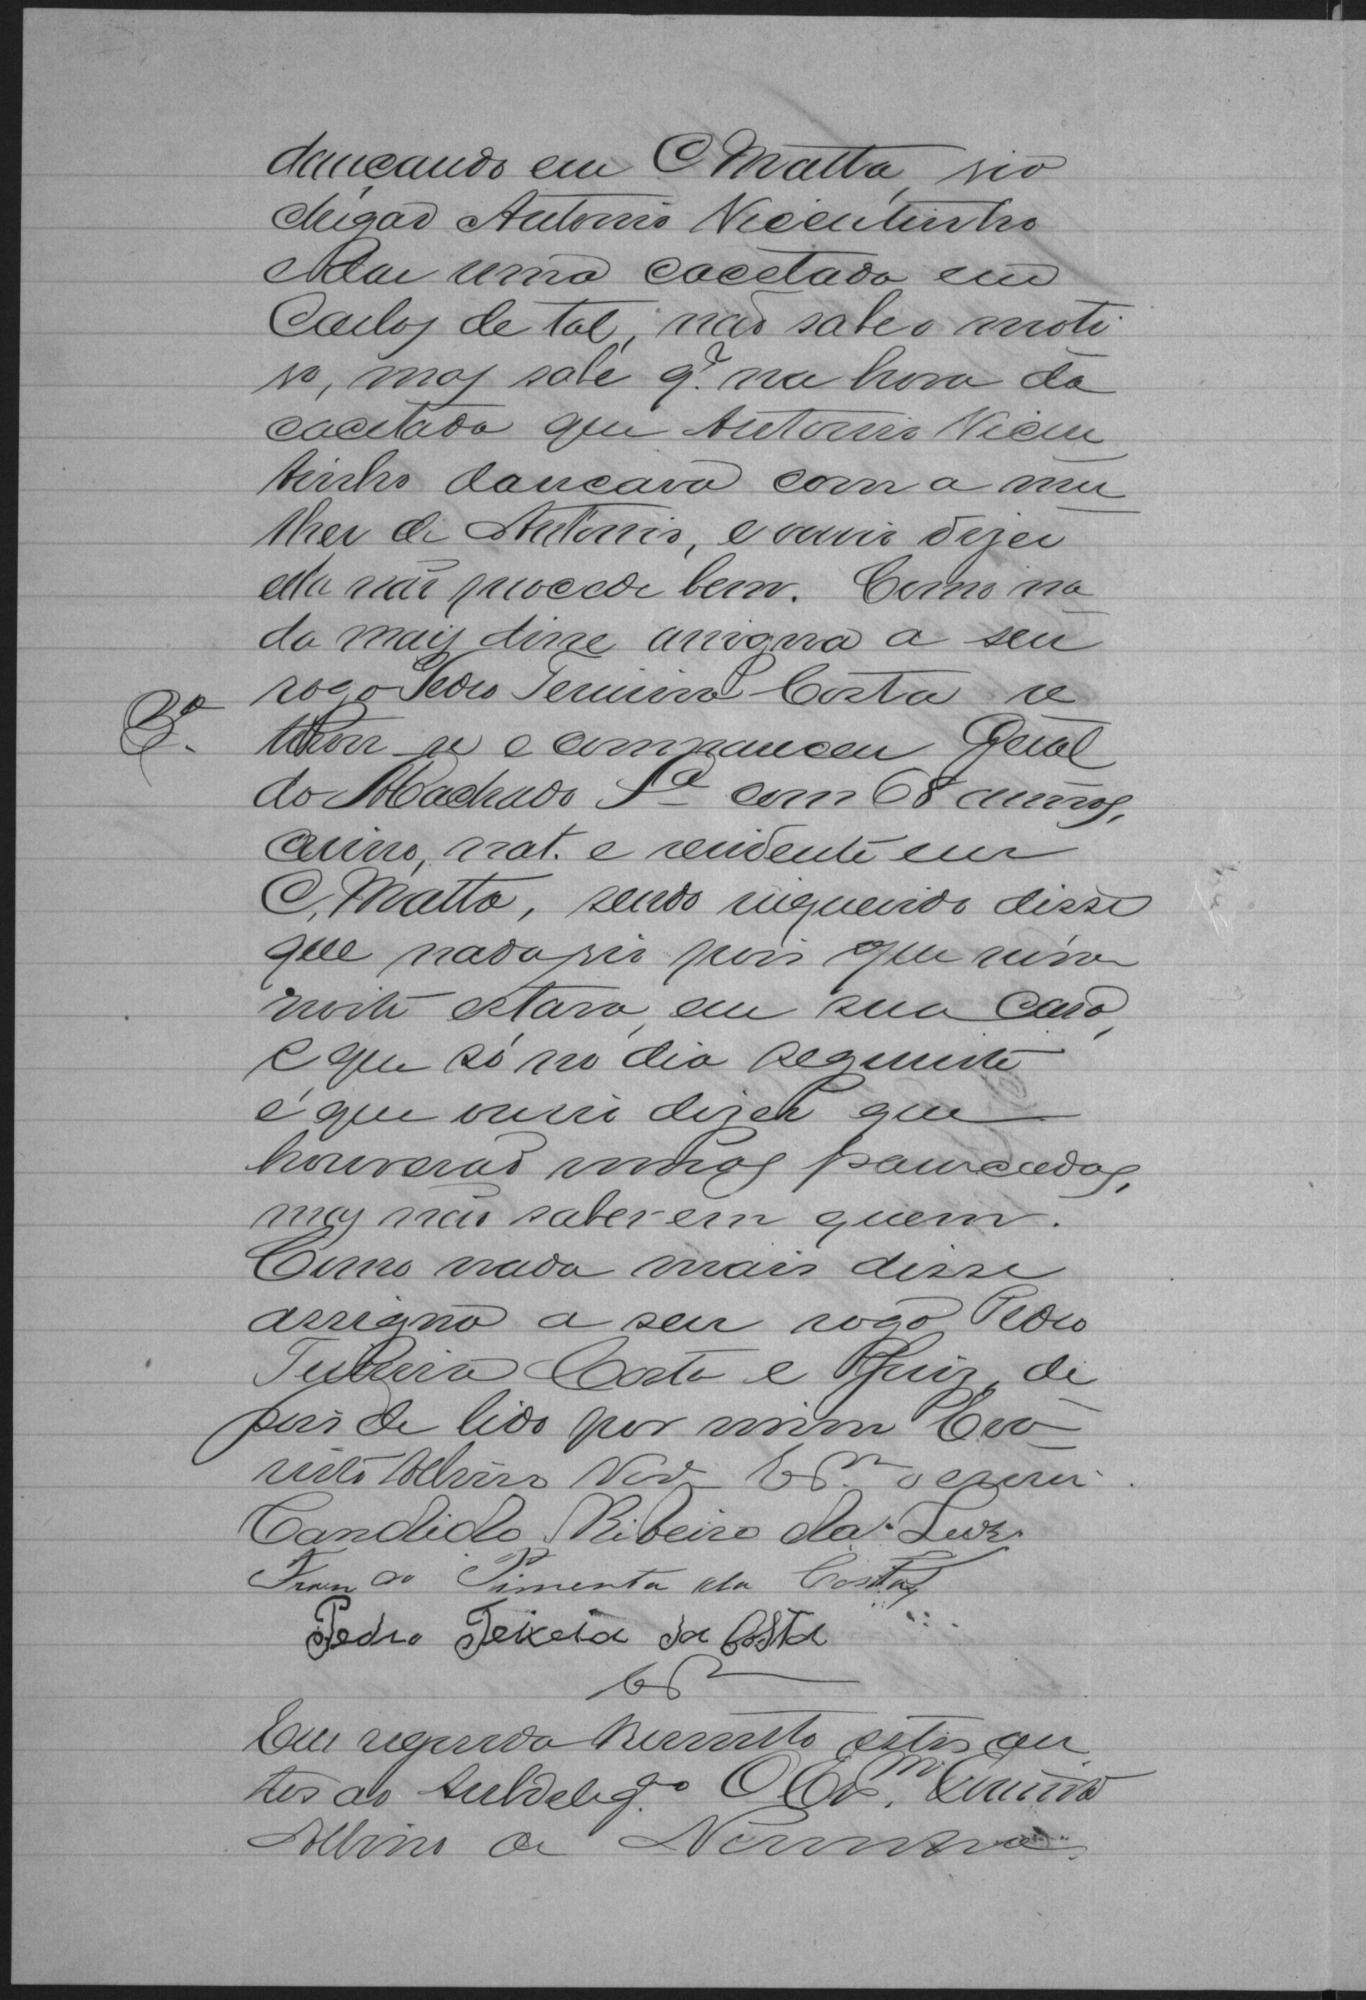 dançando em C Matta, vio
chegar Antonio Vicentinho
e dar uma cacetada em
Carlos de tal, não sabe o moti
vo, mas sabe q.e na hora da
cacetada que Antonio Vicen
tinho dançava com a mu
lher de Antonio, e ouvio dizer
ella não procede bem. Como na
da mais disse assigna a seu
rogo Pedro Teixeira Costa re
3ª
tirou se e compareceu Geral
do Machado S.a com 68 annos,
casado, nat. e residente em
C. Matta, sendo inquerido disse
que nada vio pois que nessa
noite estava em sua casa,
e que só no dia seguinte
é que ouvio dizer que
houverão umas pancadas,
mas não saber em quem.
Como nada mais disse
assigna a seu rogo Pedro
Teixeira Costa e Juiz, de
pois de lido por mim Eva
risto Albino Esm o escrevi.
Candido Ribeiro da Luz.
Franco Pimenta da Costa
Pedro Teixeia da Costa
Em seguida remetto estes au
tos ao Subdelegº. O Esm.
Albino de